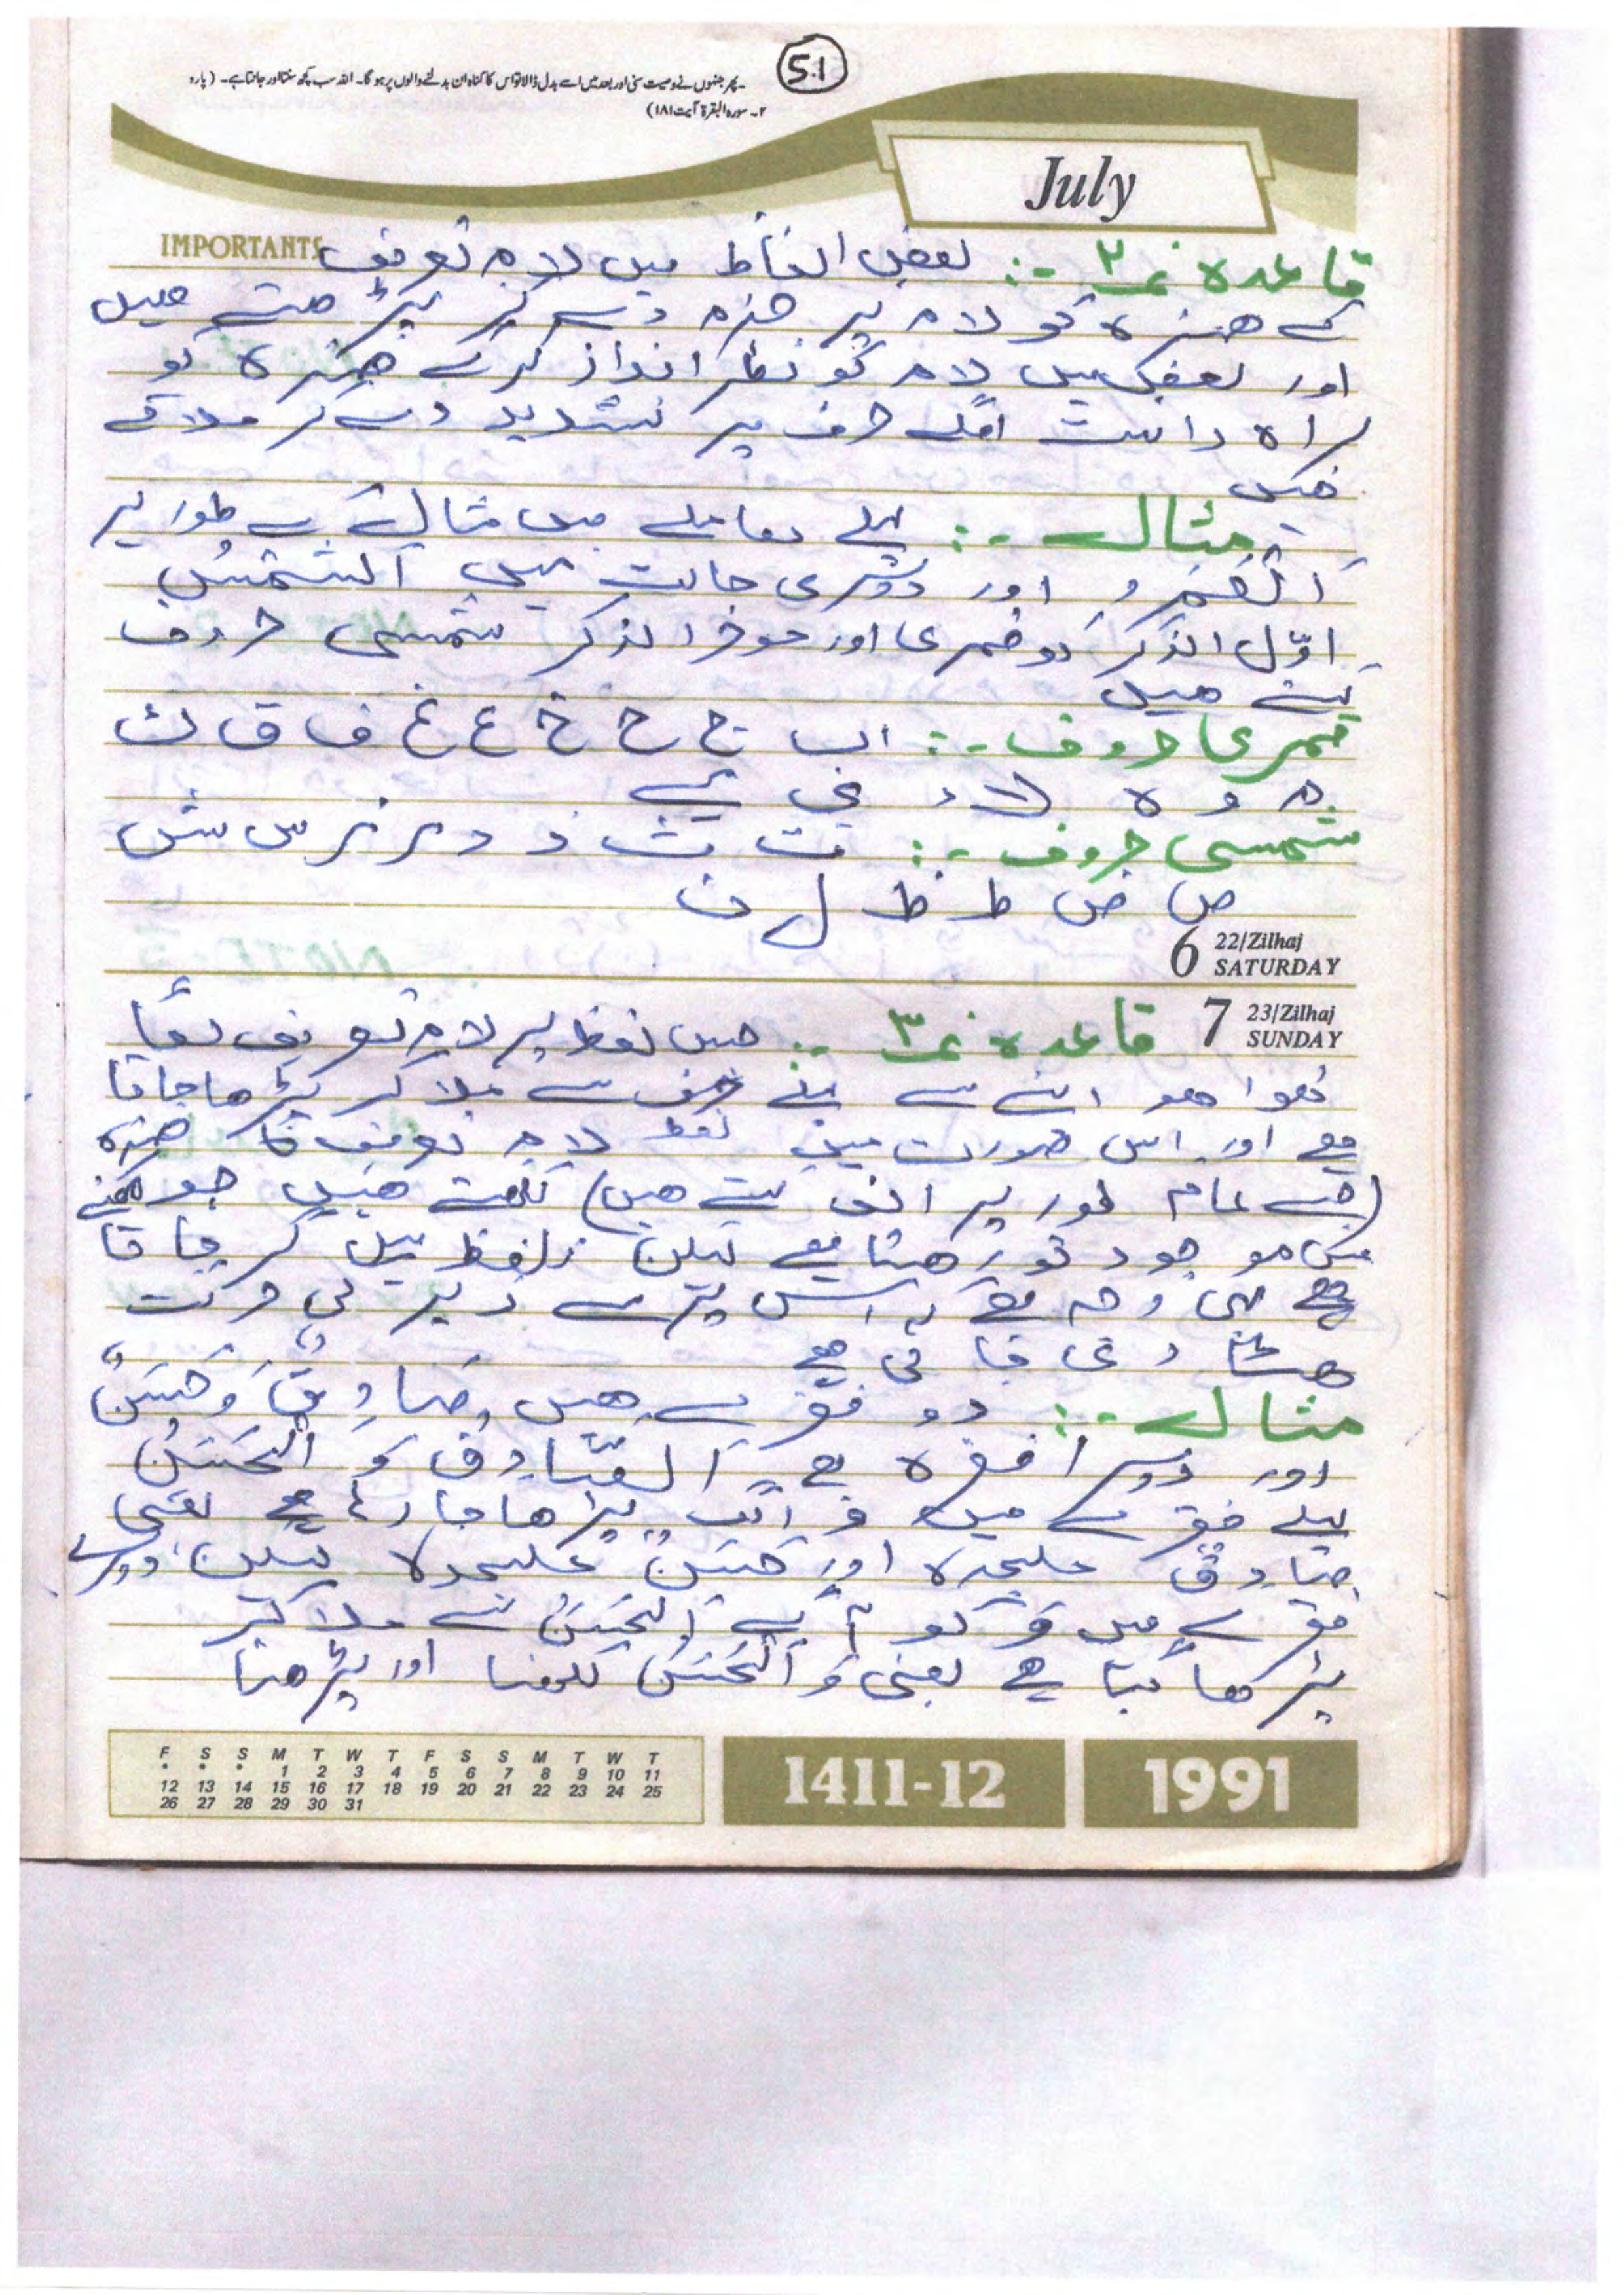 51
۔ پھر جنہوں نے وصیت سنی اور بعد میں اسے بدل ڈالا تو اس کا گناہ ان بدلنے والوں پر ہو گا۔ اللہ سب کچھ سنتا اور جانتا ہے۔ (پارہ
۲۔ سورہ البقرۃ آیت ۱۸۱)
July
IMPORTANTS
قاعدہ نمبر ۲ -: بعض الفاظ میں لام تعریف
کے ھمزہ کو لام پر جزم دے کر پڑھتے ھیں
اور بعض میں لام کو نظر انداز کرکے ھمزہ کو
براہ راست اگلے حرف پر تشدید دے کر ملاتے
ھیں
مثال -: پہلے معاملے میں مثال کے طور پر
اَلْقَمَرُ اور دوسری حالت میں اَلشَّمْسُ
اوّل الذکر کو قمری اور موخر الذکر شمسی حروف
کہتے ھیں
قمری حروف -: ا ب ج ح خ ع غ ف ق ک
م و ہ لا ء ی ے
شمسی حروف -: ت ث د ذ ر ز س ش
ص ض ط ظ ل ن
6 22/Zilhaj
SATURDAY
7 23/Zilhaj
SUNDAY
قاعدہ نمبر ۳ -: جس لفظ پر لام تعریف لگا
ھوا ھو اسے سے پہلے حرف سے ملا کر پڑھا جاتا
ھے اور اس صورت میں فقط لام تعریف کا ھمزہ
(جسے عام طور پر الف کہتے ھیں) لکھتے ھیں جو لکھنے
میں موجود تو رھتا ھے لیکن تلفظ میں گر جاتا
ھے یہی وجہ ھے کہ اس پر سے زبر کی حرکت
ھٹا دی جاتی ھے
مثال -: دو فقرے ھیں صَادِقٌ وَ حَسَنٌ
اور دوسرا فقرہ ھے اَلصَّادِقُ وَ الْحَسَنُ
پہلے فقرے میں وَ الگ پڑھا جا رہا ھے یعنی
صَادِقٌ علیحدہ اور حَسَنٌ علیحدہ لیکن دوسرے
فقرے میں وَ کو آگے اَلْحَسَنُ سے ملا کر
پڑھا گیا ھے یعنی وَ الْحَسَنُ لکھنا اور پڑھنا
F S S M T W T F S S M T W T
• • • 1 2 3 4 5 6 7 8 9 10 11
12 13 14 15 16 17 18 19 20 21 22 23 24 25
26 27 28 29 30 31
1411-12
1991